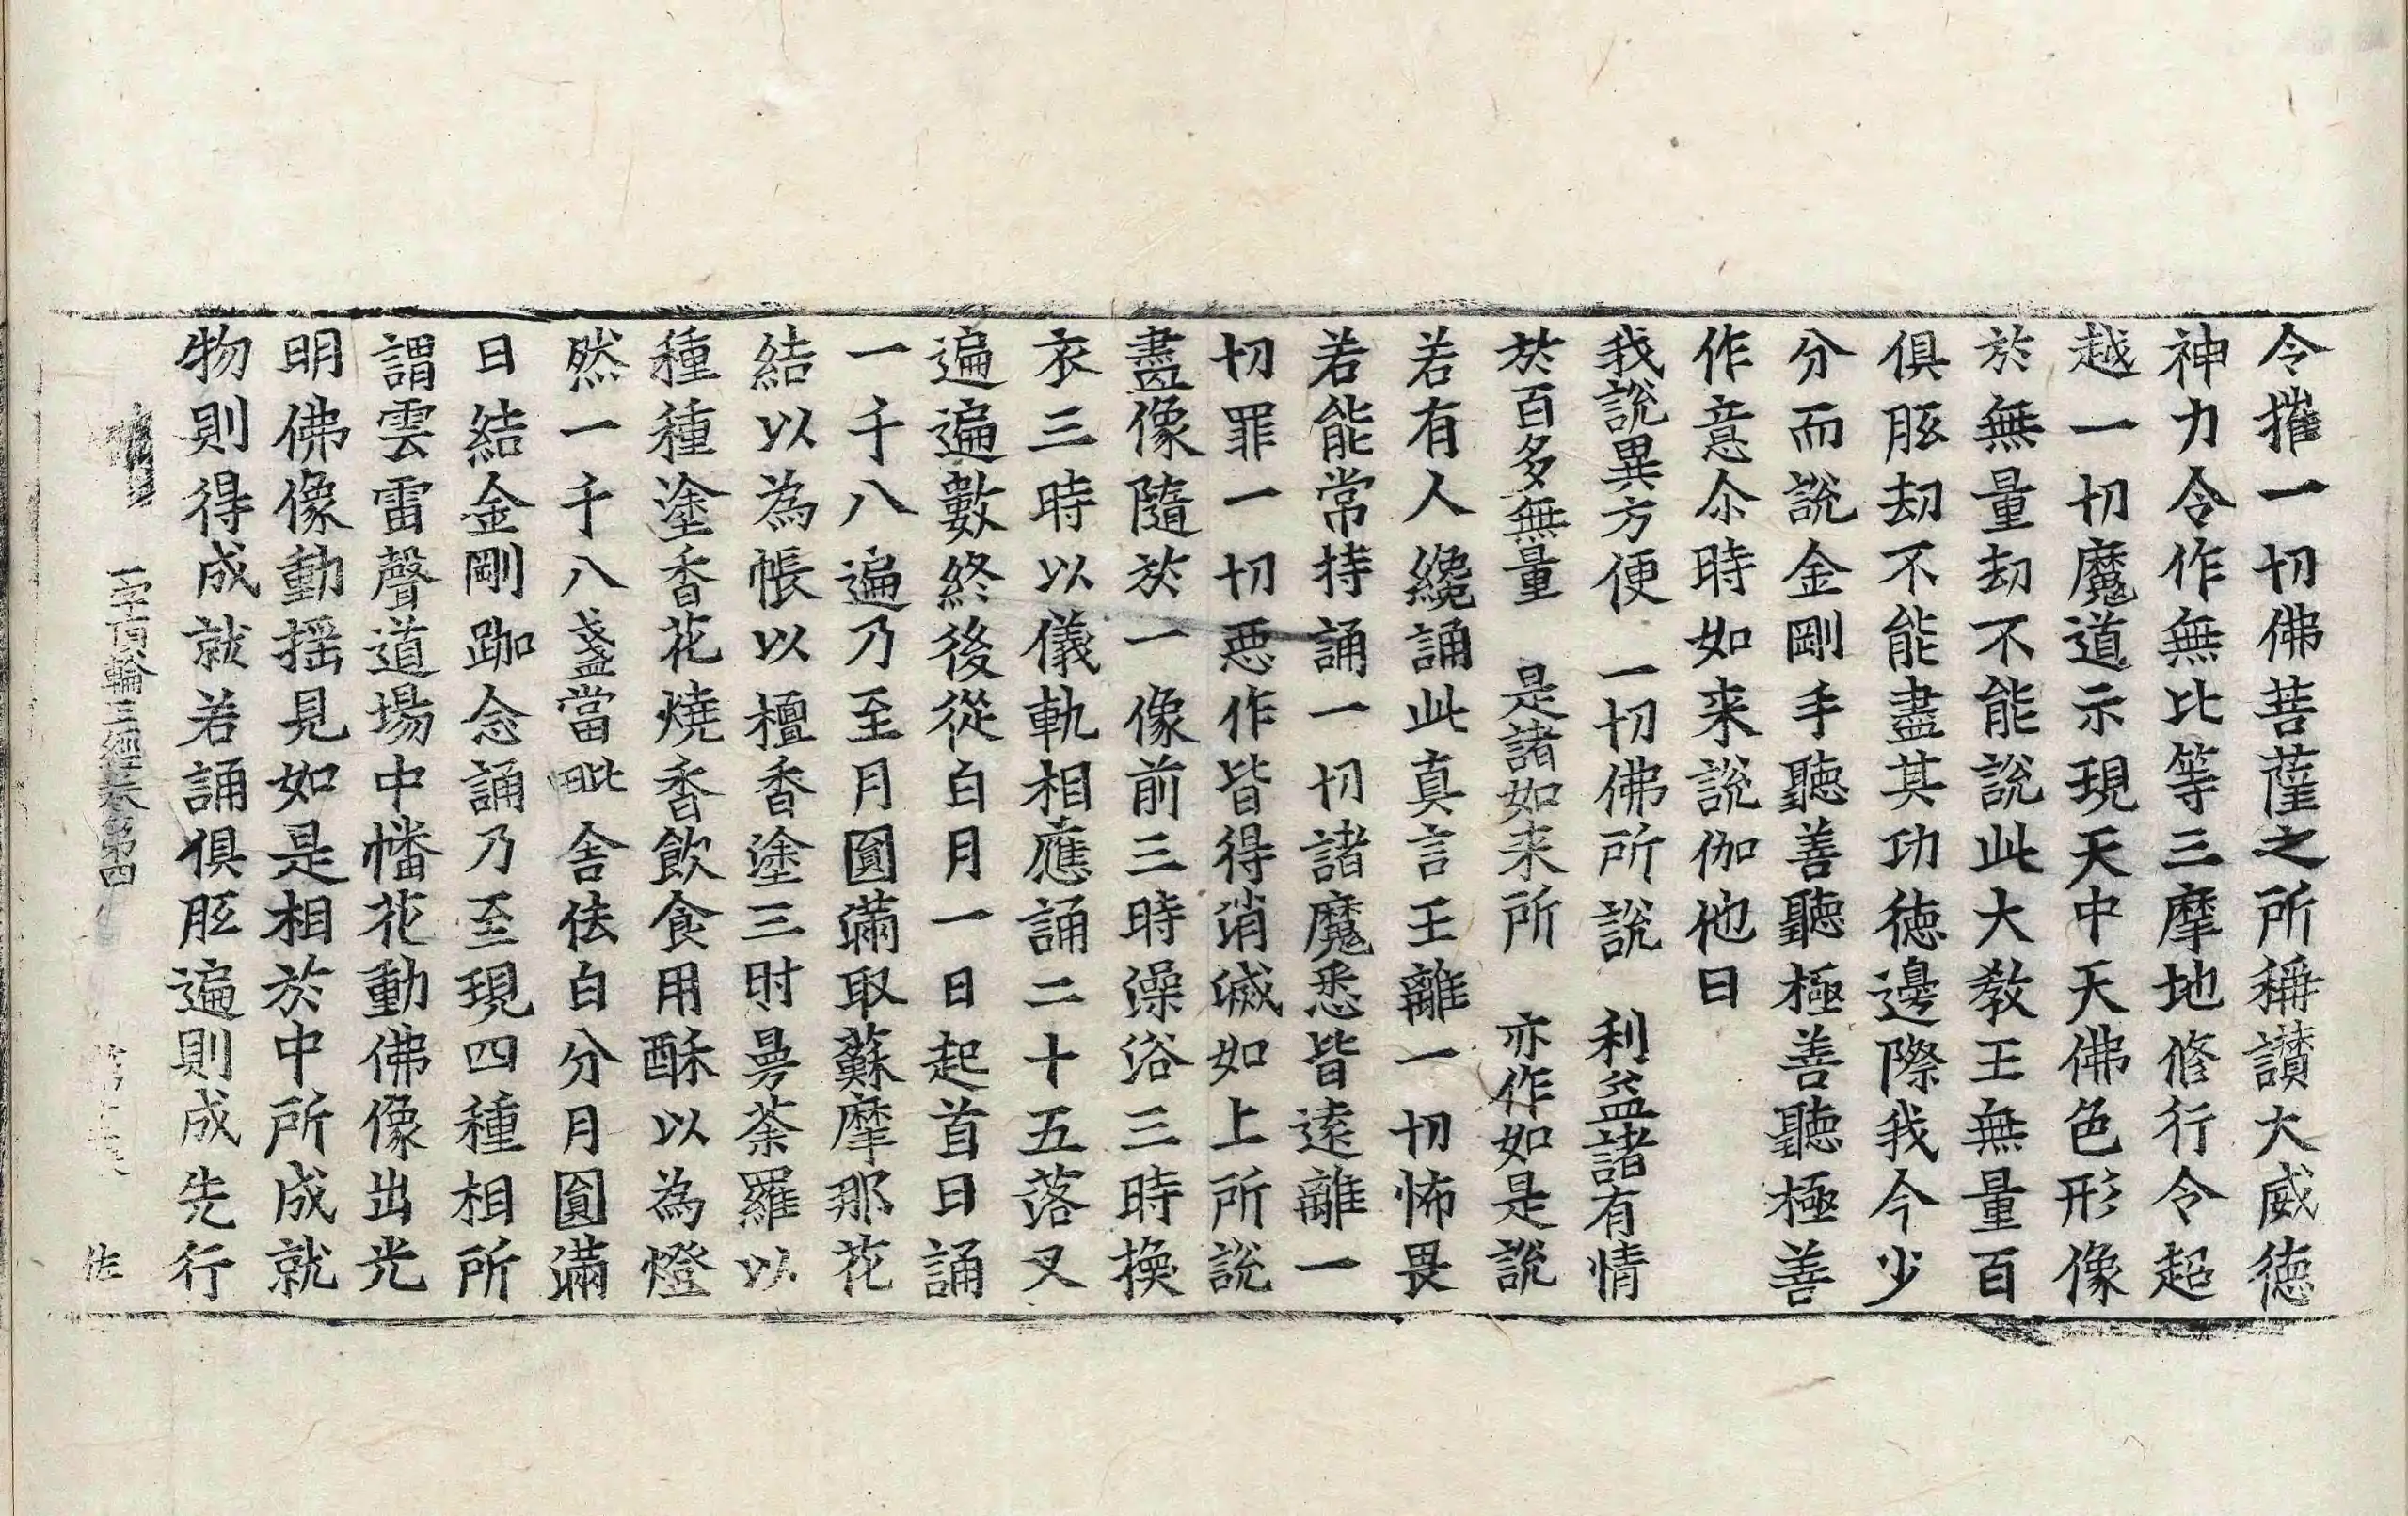 令摧一切佛菩薩之所稱讃大威徳
神力令作無比等三摩地修行令超
越一切魔道示現天中天佛色形像
於無量刧不能說此大教王無量百
俱胝刧不能盡其功徳邊際我今少
分而說金剛手聽善聽極善聽極善
作意尒時如来說伽他曰
我說異方便　一切佛所說　利益諸有情
於百多無量　是諸如来所　亦作如是說
若有人纔誦此真言王離一切怖畏
若能常持誦一切諸魔悉皆遠離一
切罪一切惡作皆得消滅如上所說
盡像隨於一像前三時澡浴三時換
衣三時以儀軌相應誦二十五落叉
遍遍數終後從白月一日起首日誦
一千八遍乃至月圓滿取蘇摩那花
結以為帳以檀香塗三時曼荼羅以
種種塗香花燒香飲食用酥以為燈
然一千八盞當毗舍佉白分月圓滿
日結金剛跏念誦乃至現四種相所
謂雲雷聲道場中幡花動佛像出光
明佛像動揺見如是相於中所成就
物則得成就若誦俱胝遍則成先行
一字頂輪王經卷第四 佐